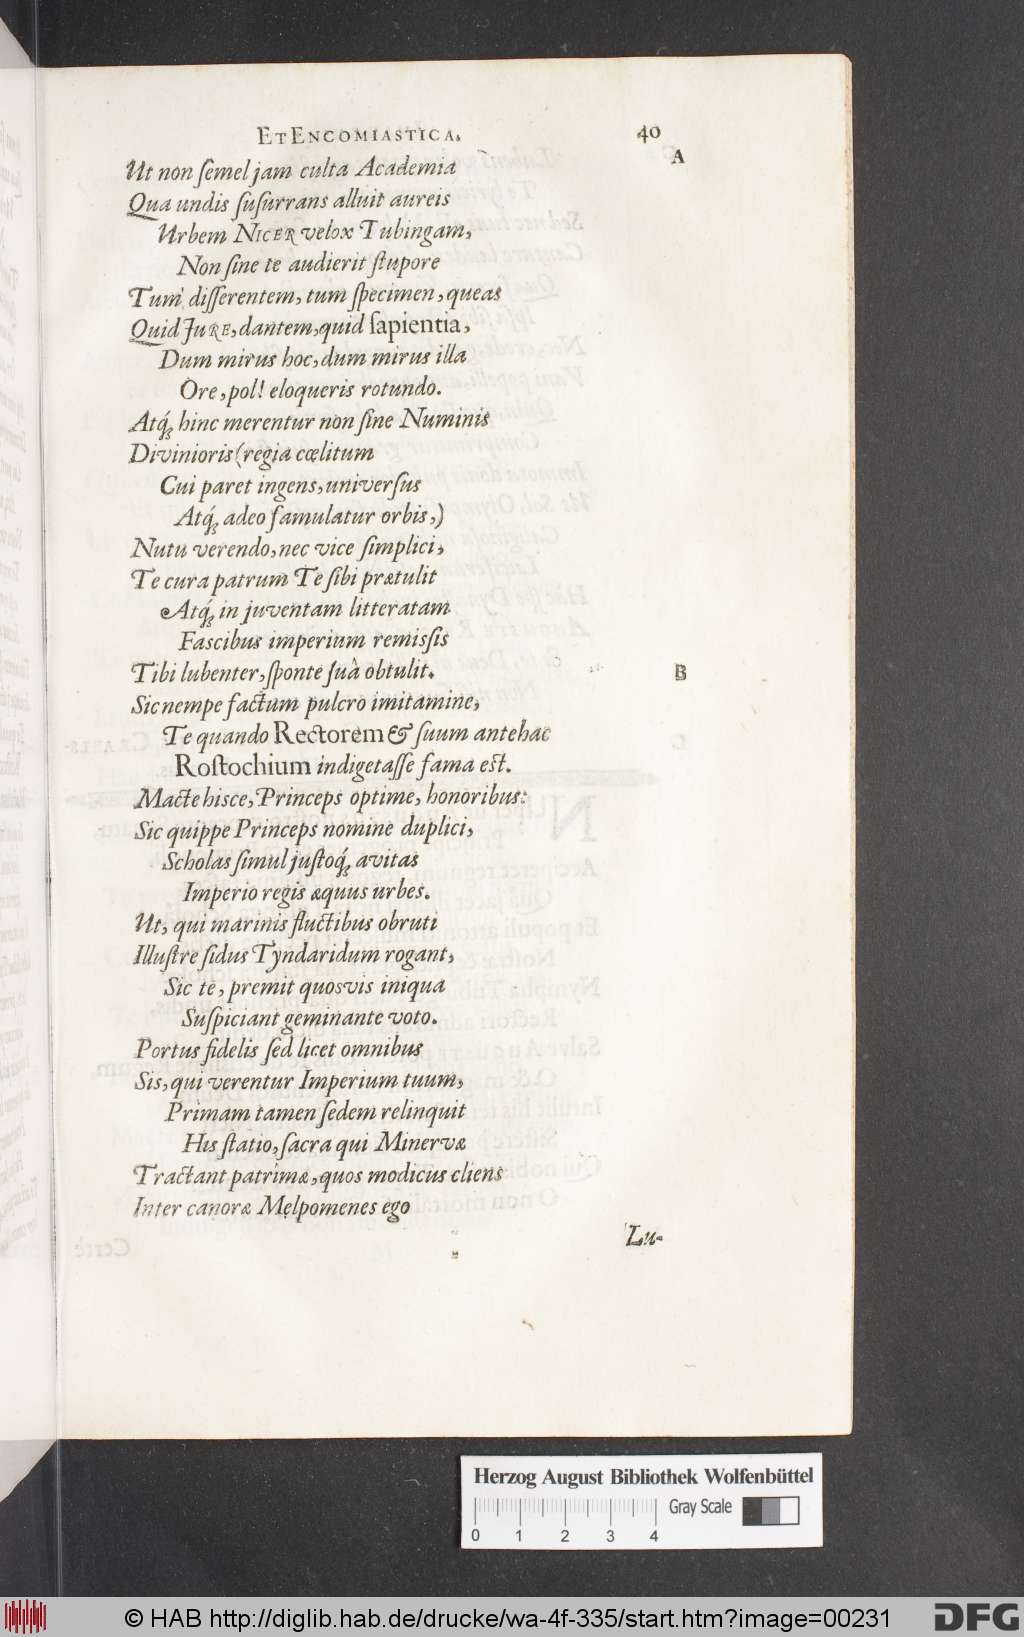 ET ENCOMIASTICA. 40
A
Ut non ſemel jam culta Academia
Qua undis ſuſurrans alluit aureis
Urbem NICER velox Tubingam,
Non ſine te audierit ſtupore
Tum diſſerentem, tum ſpecimen, queas
Quid JURE, dantem, quid ſapientia,
Dum mirus hoc, dum mirus illa
Ore, pol! eloqueris rotundo.
Atq́; hinc merentur non ſine Numinis
Divinioris (regia cœlitum
Cui paret ingens, univerſus
Atq́; adeo famulatur orbis,)
Nutu verendo, nec vice ſimplici,
Te cura patrum Te ſibi prætulit
Atq́; in juventam litteratam
Faſcibus imperium remiſsis
Tibi lubenter, ſponte ſuâ obtulit.
B
Sic nempe factum pulcro imitamine,
Te quando Rectorem & ſuum antehac
Roſtochium indigetaſſe fama eſt.
Macte hisce, Princeps optime, honoribus:
Sic quippe Princeps nomine duplici,
Scholas ſimul juſtoq́; avitas
Imperio regis æquus urbes.
Ut, qui marinis fluctibus obruti
Illuſtre ſidus Tyndaridum rogant,
Sic te, premit quosvis iniqua
Suſpiciant geminante voto.
Portus fidelis ſed licet omnibus
Sis, qui verentur Imperium tuum,
Primam tamen ſedem relinquit
His ſtatio, ſacra qui Minervæ
Tractant patrimæ, quos modicus cliens
Inter canoræ Melpomenes ego
Lu-
Herzog August Bibliothek Wolfenbüttel
Gray Scale
0 1 2 3 4
© HAB http://diglib.hab.de/drucke/wa-4f-335/start.htm?image=00231
DFG